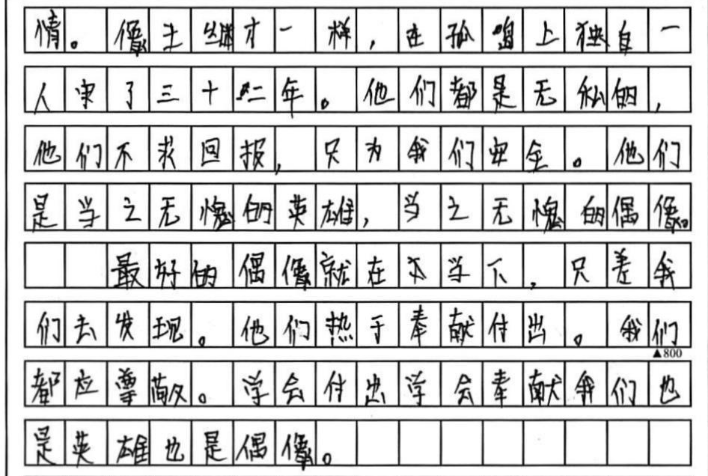 情。像王继才一样，在孤岛上独自一
人守了三十二年。他们都是无私的，
他们不求回报，只为我们安全。他们
是当之无愧的英雄，当之无愧的偶像。
最好的偶像就在当下，只差我
们去发现。他们热于奉献付出。我们
▲800
都应尊敬。学会付出学会奉献我们也
是英雄也是偶像。